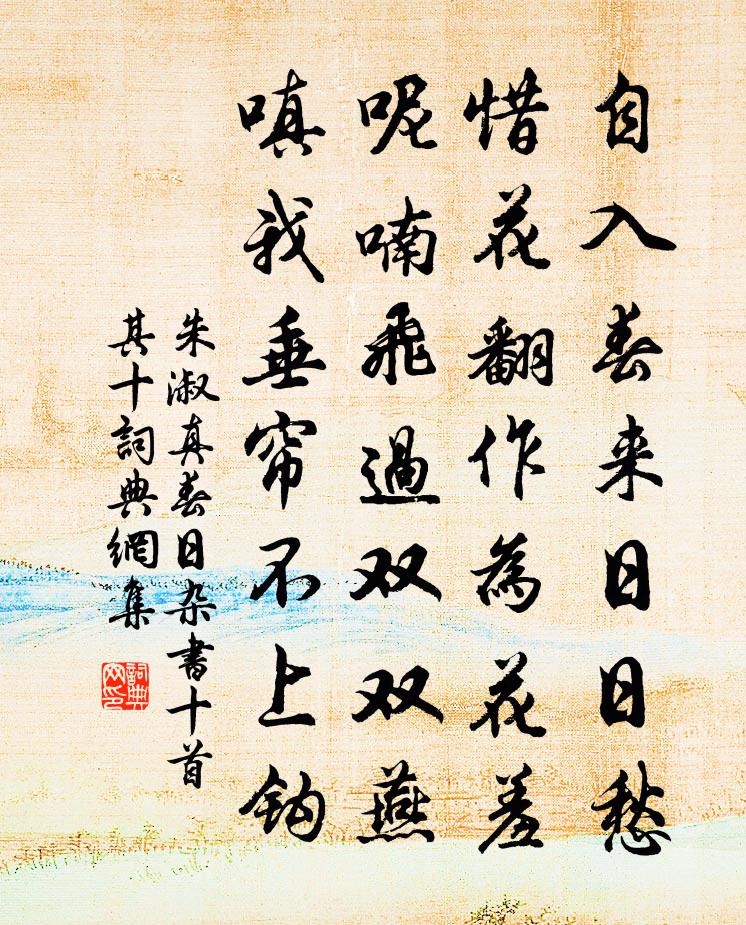 自入春来日日愁
惜花翻作為花羞
呢喃飛過双双燕
嗔我垂帘不上鈎
朱淑真春日杂書十首
其十詞典網集
詞典网印